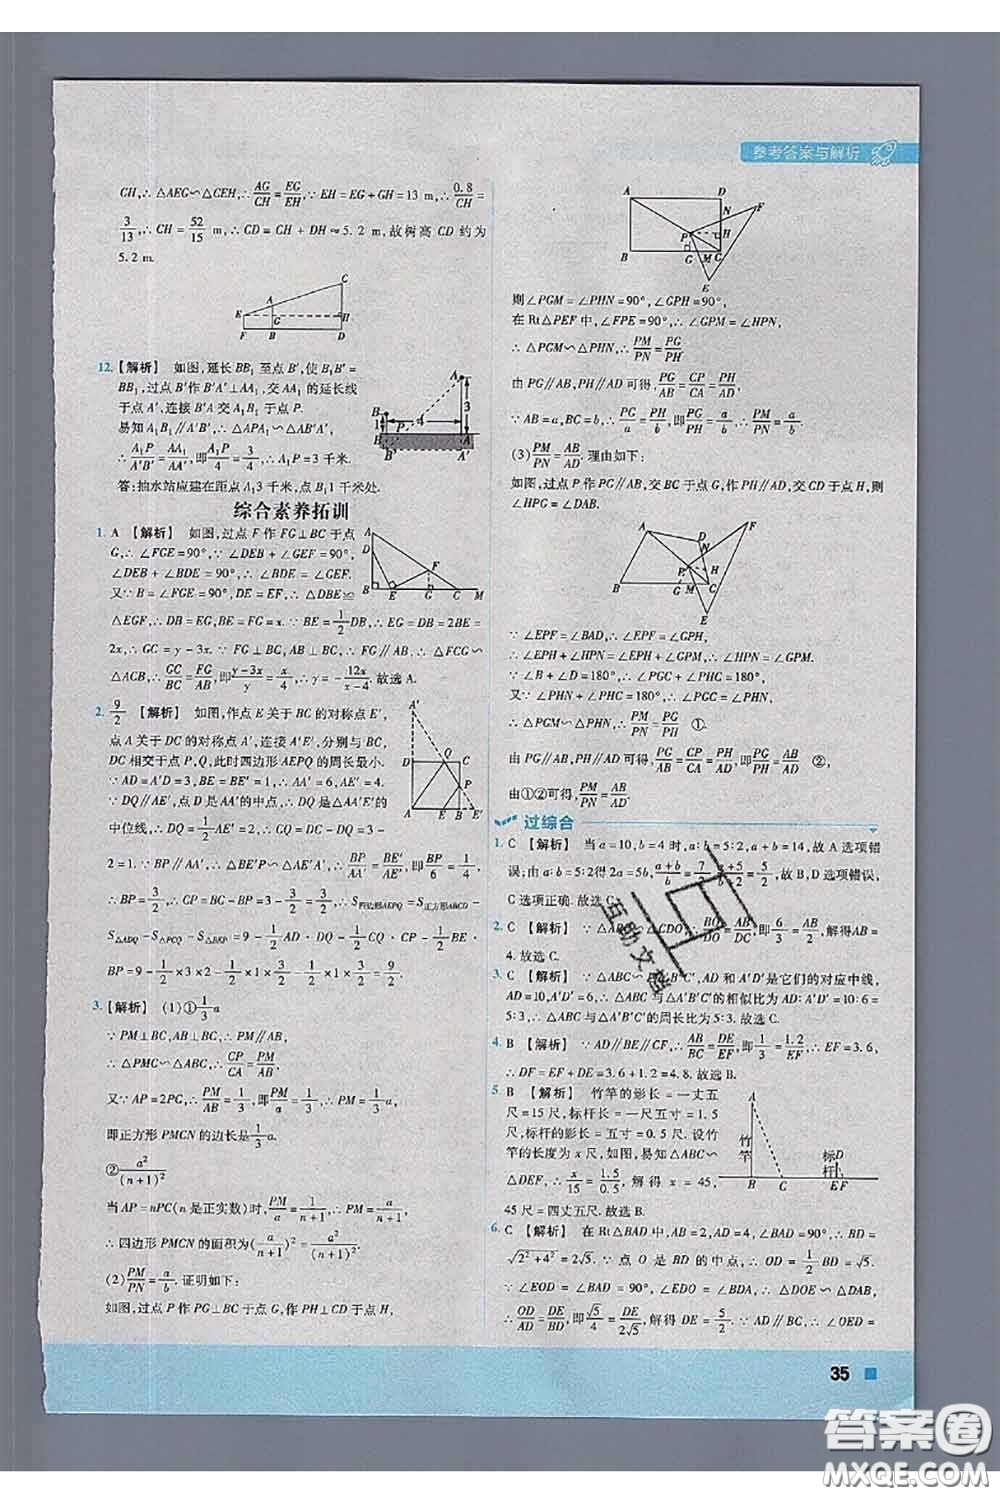 参考答案与解析
CH,∴△AEG∽△CEH,∴AG/CH=EG/EH,∵EH=EG+GH=13 m,∴0.8/CH=
3/13,∴CH=52/15 m,∴CD=CH+DH≈5.2 m,故树高 CD 约为
5.2 m.
12.【解析】 如图,延长 BB₁ 至点 B′,使 B₁B′=
BB₁,过点 B′作 B′A′⊥AA₁,交 AA₁ 的延长线
于点 A′,连接 B′A 交 A₁B₁ 于点 P.
易知 A₁B₁∥A′B′,∴△APA₁∽△AB′A′,
∴A₁P/A′B′=AA₁/AA′,即A₁P/4=3/4,∴A₁P=3 千米.
答:抽水站应建在距点 A₁3 千米,点 B₁1 千米处.
综合素养拓训
1. A 【解析】 如图,过点 F 作 FG⊥BC 于点
G,∴∠FGE=90°,∴∠DEB+∠GEF=90°,
∠DEB+∠BDE=90°,∴∠BDE=∠GEF.
又∵∠B=∠FGE=90°,DE=EF,∴△DBE≌
△EGF,∴DB=EG,BE=FG=x.∵BE=1/2DB,∴EG=DB=2BE=
2x,∴GC=y-3x.∵FG⊥BC,AB⊥BC,∴FG∥AB,∴△FCG∽
△ACB,∴GC/BC=FG/AB,即(y-3x)/y=x/4,∴y=-12x/(x-4).故选 A.
2. 9/2 【解析】 如图,作点 E 关于 BC 的对称点 E′,
点 A 关于 DC 的对称点 A′,连接 A′E′,分别与 BC,
DC 相交于点 P,Q,此时四边形 AEPQ 的周长最小.
∵AD=A′D=3,BE=BE′=1,∴AA′=6,AE′=4.
∵DQ∥AE′,点 D 是 AA′的中点,∴DQ是△AA′E′的
中位线,∴DQ=1/2AE′=2,∴CQ=DC-DQ=3-
2=1.∵BP∥AA′,∴△BE′P∽△AE′A′,∴BP/AA′=BE′/AE′,即BP/6=1/4,
∴BP=3/2,∴CP=BC-BP=3-3/2=3/2,∴S四边形AEPQ=S正方形ABCD-
S△ADQ-S△PCQ-S△BEP=9-1/2AD·DQ-1/2CQ·CP-1/2BE·
BP=9-1/2×3×2-1/2×1×3/2-1/2×1×3/2=9/2.
3.【解析】 (1)①1/3a
∵PM⊥BC,AB⊥BC,∴PM∥AB,
∴△PMC∽△ABC,∴CP/CA=PM/AB.
又∵AP=2PC,∴PM/AB=1/3,即PM/a=1/3,∴PM=1/3a,
即正方形 PMCN 的边长是1/3a.
②a²/(n+1)²
当 AP=nPC(n 是正实数)时,PM/a=1/(n+1),∴PM=a/(n+1),
∴四边形 PMCN 的面积为(a/(n+1))²=a²/(n+1)².
(2)PM/PN=a/b.证明如下:
如图,过点 P 作 PG⊥BC 于点 G,作 PH⊥CD 于点 H,
则∠PGM=∠PHN=90°,∠GPH=90°,
在 Rt△PEF 中,∠FPE=90°,∴∠GPM=∠HPN,
∴△PGM∽△PHN,∴PM/PN=PG/PH.
由 PG∥AB,PH∥AD 可得,PG/AB=CP/CA=PH/AD.
∵AB=a,BC=b,∴PG/a=PH/b,即PG/PH=a/b,∴PM/PN=a/b.
(3)PM/PN=AB/AD.理由如下:
如图,过点 P 作 PG∥AB,交 BC 于点 G,作 PH∥AD 交 CD 于点 H,则
∠HPG=∠DAB.
∵∠EPF=∠BAD,∴∠EPF=∠GPH,
∴∠EPH+∠HPN=∠EPH+∠GPM,∴∠HPN=∠GPM.
∵∠B+∠D=180°,∴∠PGC+∠PHC=180°,
又∵∠PHN+∠PHC=180°,∴∠PGC=∠PHN,
∴△PGM∽△PHN,∴PM/PN=PG/PH ①.
由 PG∥AB,PH∥AD 可得,PG/AB=CP/CA=PH/AD,即PG/PH=AB/AD ②,
由①②可得,PM/PN=AB/AD.
过综合
1. C 【解析】 当 a=10,b=4 时,a:b=5:2,a+b=14,故 A 选项错
误;由 a:b=5:2得 2a=5b,(a+b)/b=7/2,故 B,D 选项错误,
C 选项正确.故选 C.
2. C 【解析】
4.故选 C.
3. C 【解析】 ∵△ABC∽△A′B′C′,AD 和 A′D′是它们的对应中线,
AD=10,A′D′=6,∴△ABC 与△A′B′C′的相似比为 AD:A′D′=10:6=
5:3,∴△ABC 与△A′B′C′的周长比为 5:3.故选 C.
4. B 【解析】 ∵AD∥BE∥CF,∴AB/BC=DE/EF,即1/3=1.2/EF,∴EF=3.6,
∴DF=DE+EF=3.6+1.2=4.8.故选 B.
5 B 【解析】 竹竿的影长=一丈五
尺=15 尺,标杆长=一尺五寸=1.5
尺,标杆的影长=五寸=0.5 尺.设竹
竿的长度为 x 尺,如图,易知△ABC∽
△DEF,∴x/15=1.5/0.5,解得 x=45,
45 尺=四丈五尺.故选 B.
6. C 【解析】 在 Rt△BAD 中,AB=2,AD=4,∠BAD=90°,∴BD=
√(2²+4²)=2√5.∵点 O 是 BD 的中点,∴OD=1/2BD=√5.
∵∠EOD=∠BAD=90°,∠EDO=∠BDA,∴△DOE∽△DAB,
∴OD/AD=DE/BD,即√5/4=DE/2√5,解得 DE=5/2.∵AD∥BC,∴∠OED=
35
互助文
答案圈
MXQE.COM